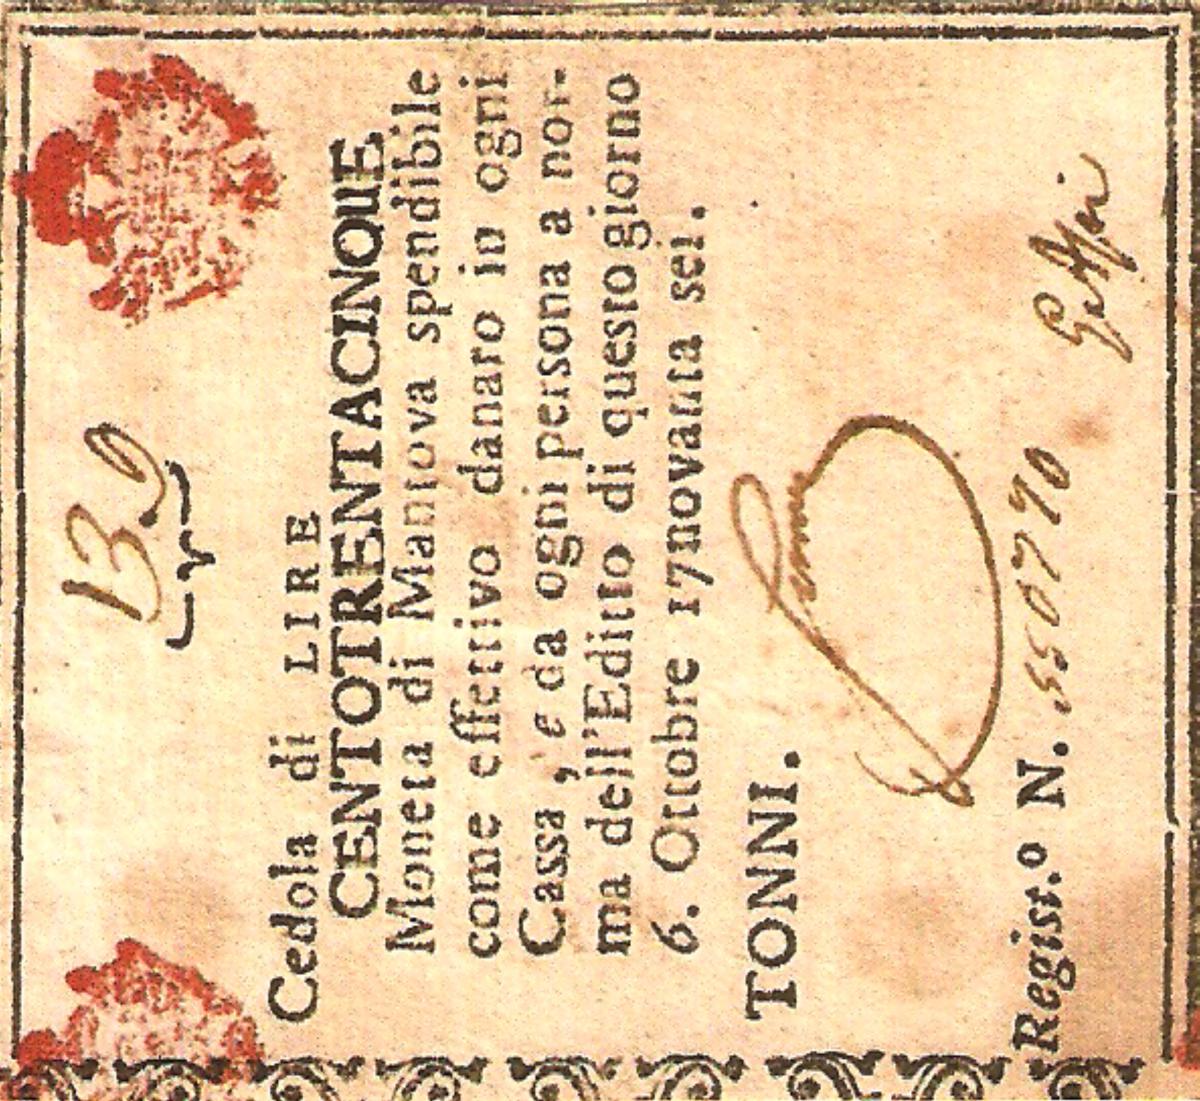 139
Cedola di LIRE
CENTOTRENTACINQUE
Moneta di Mantova spendibile
come effettivo danaro in ogni
Cassa, e da ogni persona a nor-
ma dell'Editto di questo giorno
6. Ottobre 17novanta sei.
TONNI.
Regist.º N.